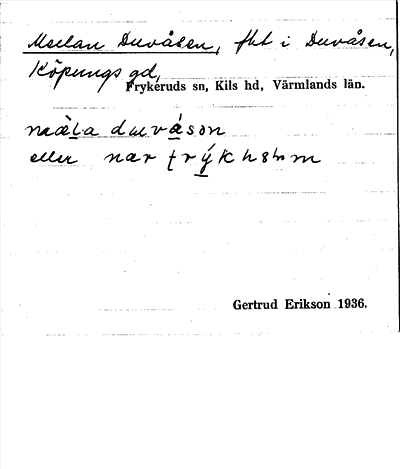 Mellan Duvåsen, fkt i Duvåsen,
Köpungs gd,
Frykeruds sn, Kils hd, Värmlands län.
duváson
eller nar
Gertrud Erikson 1936.